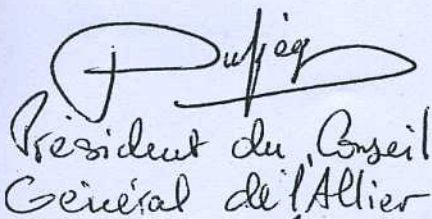 Président du Conseil
Général de l'Allier